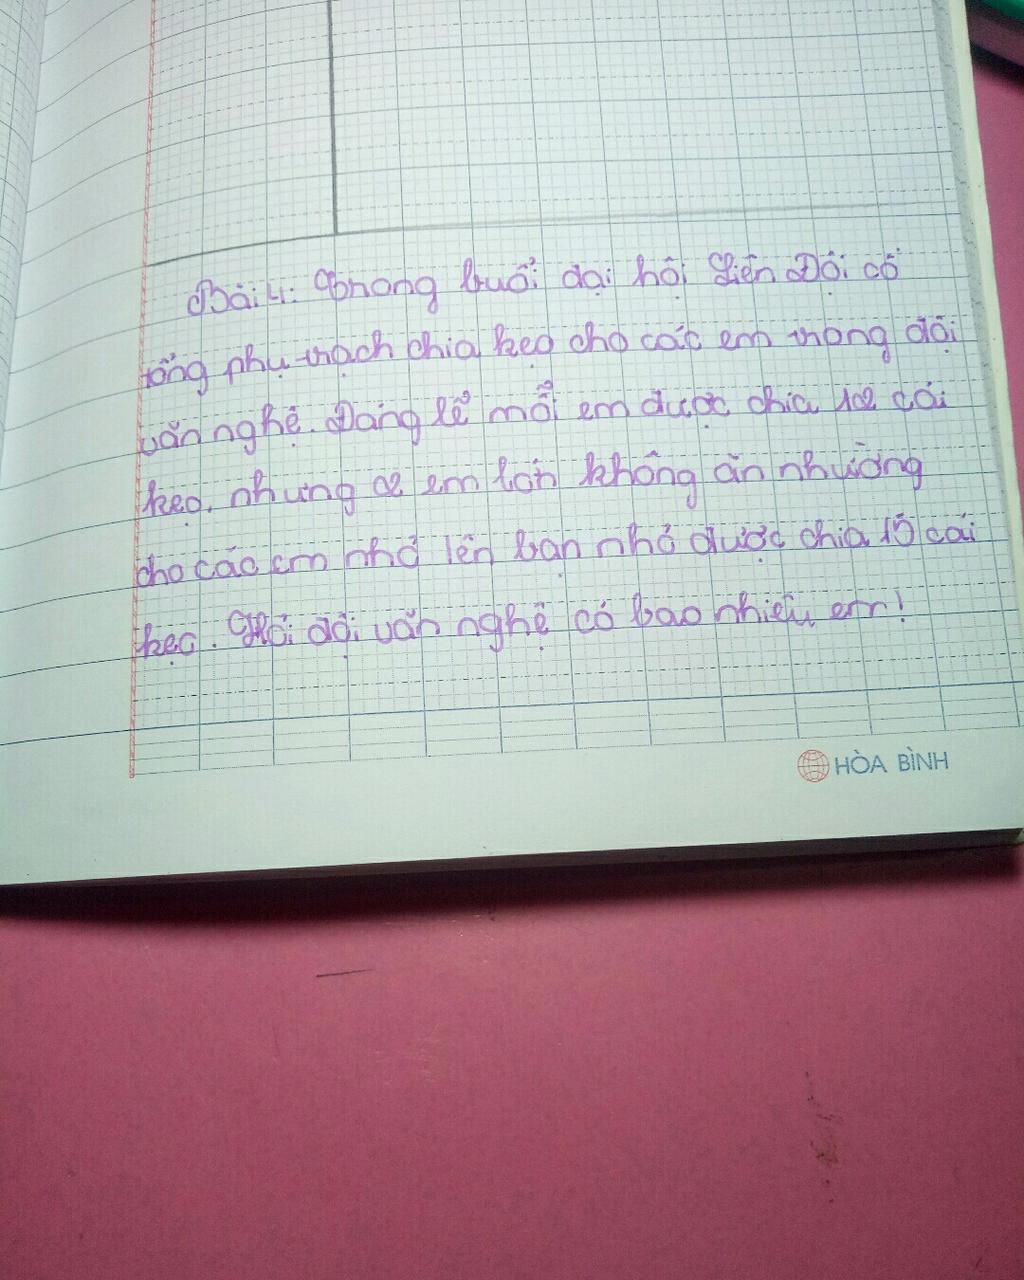 Bài 4: Trong buổi đại hội Liên Đội cô
tổng phụ trạch chia kẹo cho các em trong đội
văn nghệ. Đáng lẽ mỗi em được chia 12 cái
kẹo, nhưng 2 em lớn không ăn nhường
cho các em nhỏ lên bạn nhỏ được chia 15 cái
kẹo. Hỏi đội văn nghệ có bao nhiêu em!
HÒA BÌNH